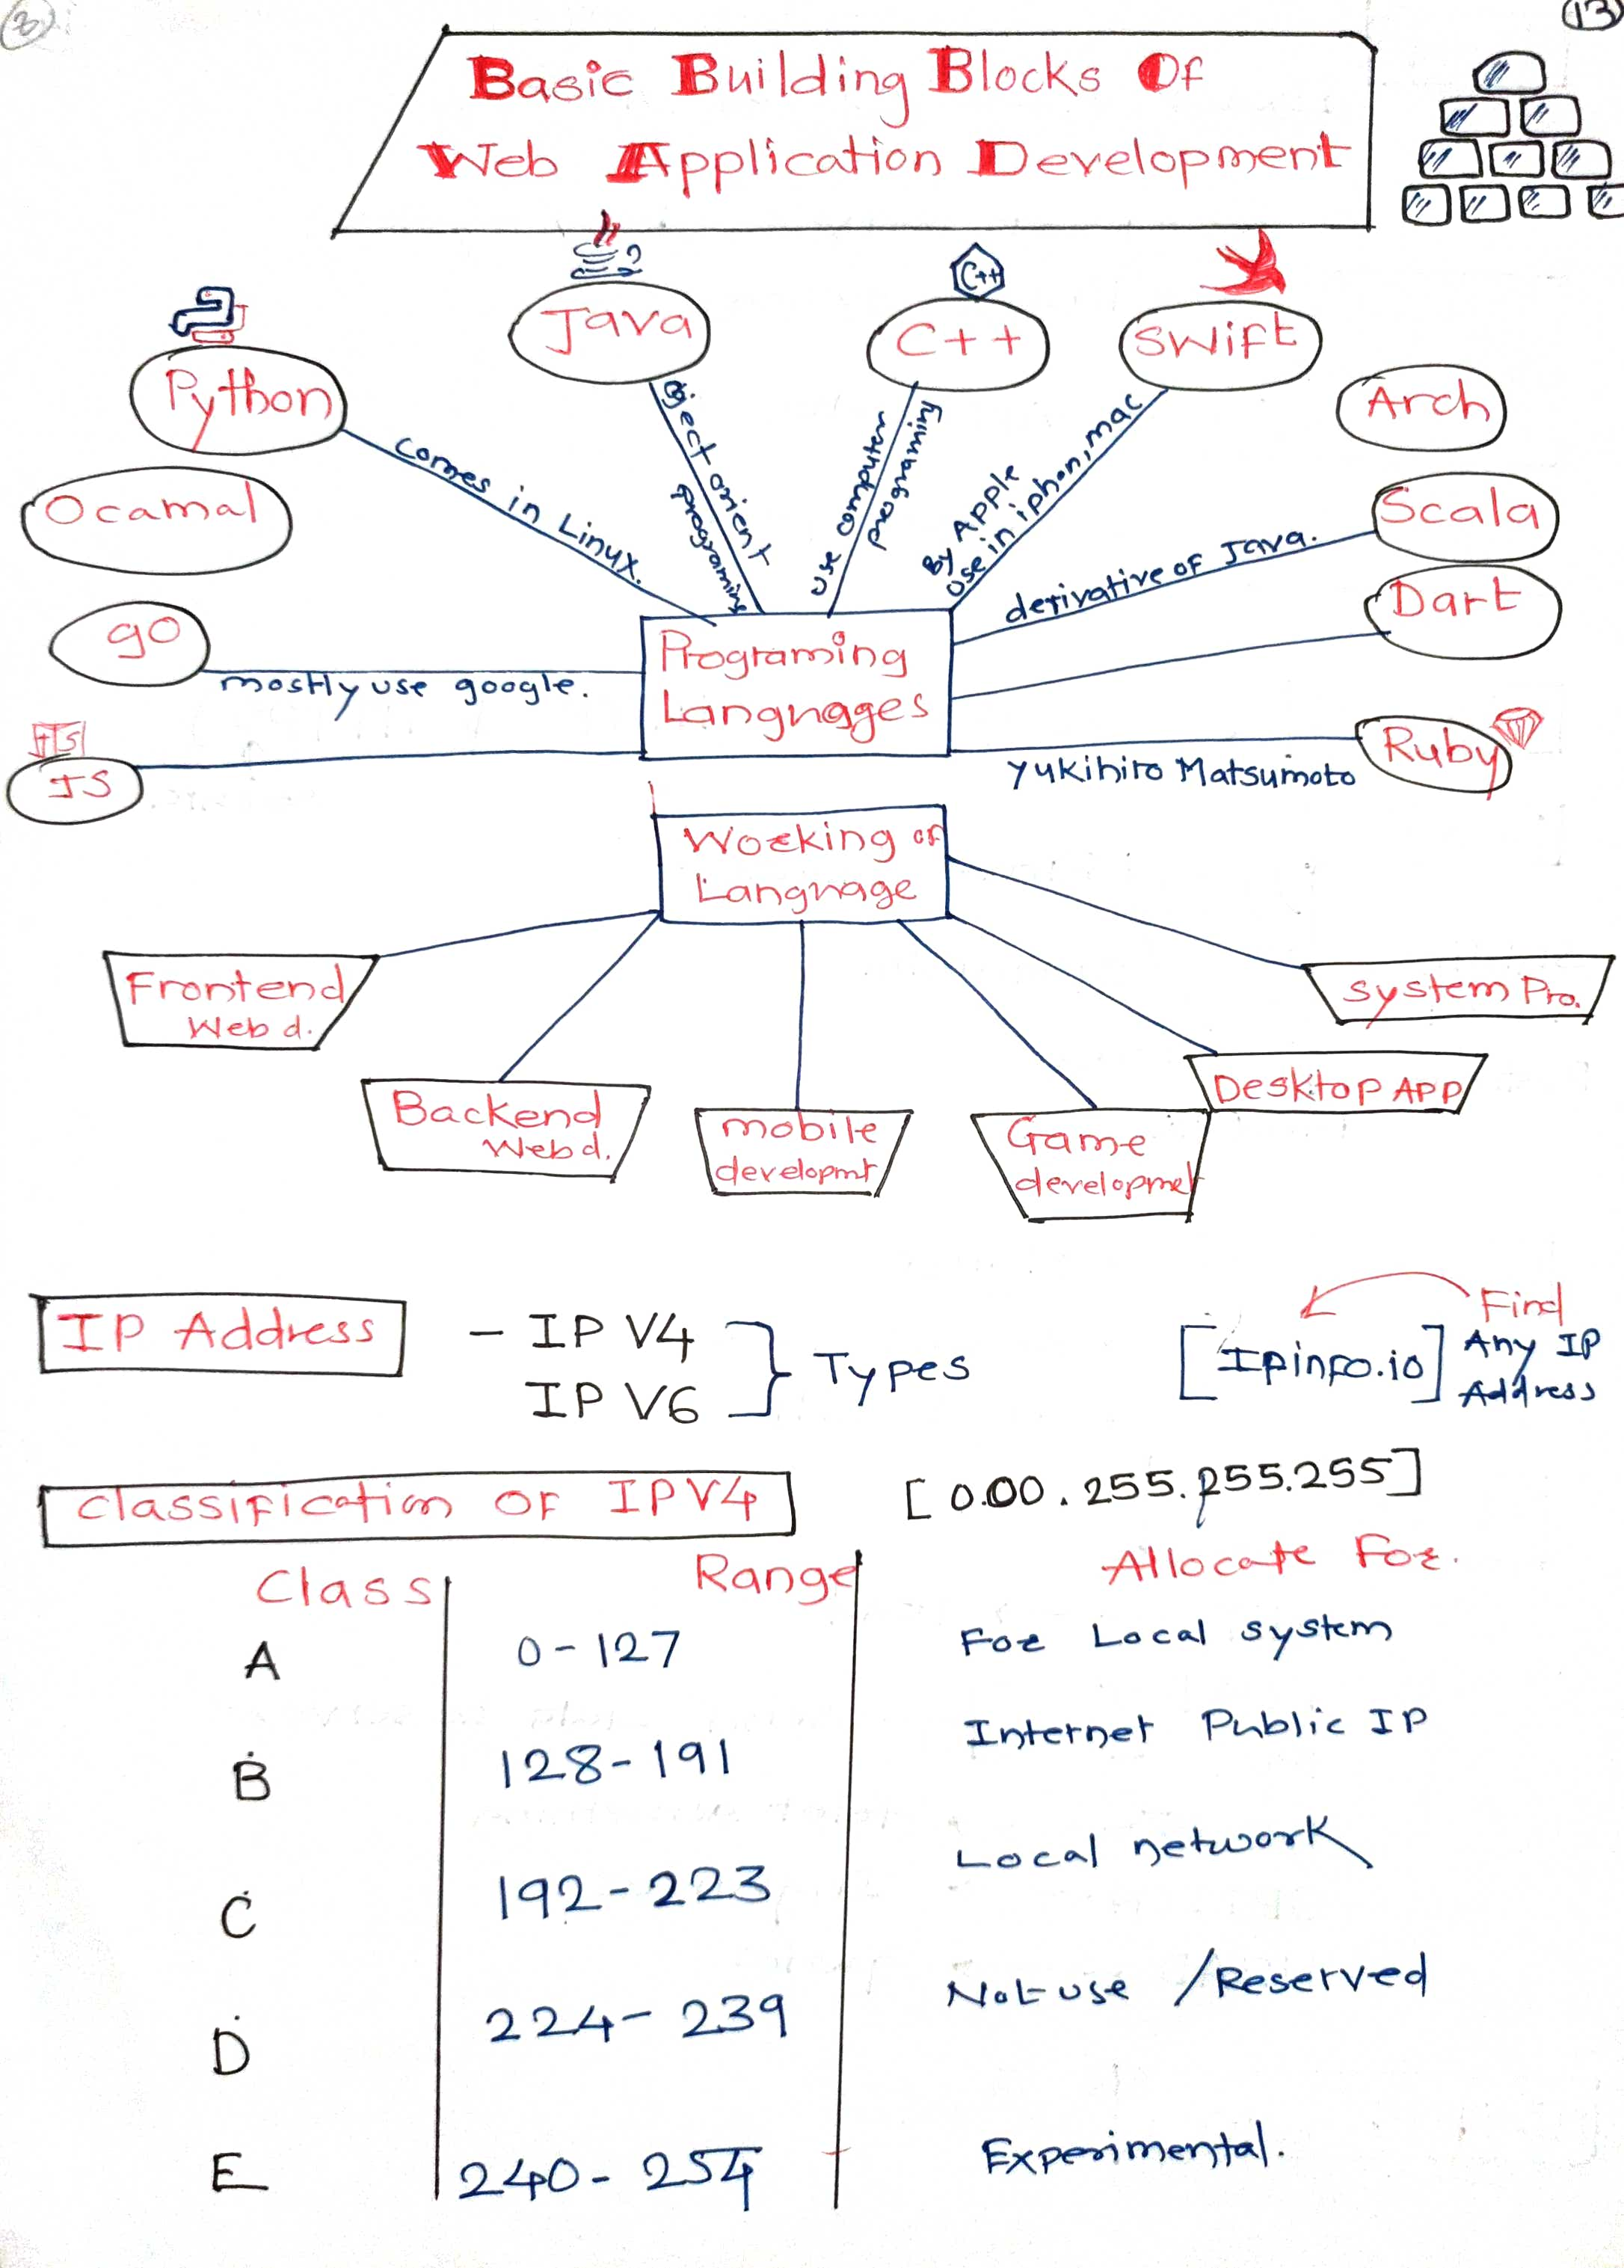 8
13
Basic Building Blocks Of
Web Application Development
Java
C++
C++
Swift
Python
Arch
Ocamal
Scala
go
Dart
JS
JS
Ruby
comes in Linux.
Object orient
programing
use computer
programing
By Apple
use in iphon, mac
derivative of Java.
mostly use google.
Yukihiro Matsumoto
Programing
Langnages
Working of
Langnage
Frontend
Web d.
System Pro.
Backend
Web d.
mobile
developmt
Game
developmet
Desktop APP
IP Address
- IP V4
IP V6
Types
[Ipinfo.io]
Find
Any IP
Address
Classification OF IPV4
[0.00.255.255.255]
Class Range Allocate For.
A 0-127 For Local system
B 128-191 Internet Public IP
C 192-223 Local network
D 224-239 Not-use /Reserved
E 240-254 Experimental.